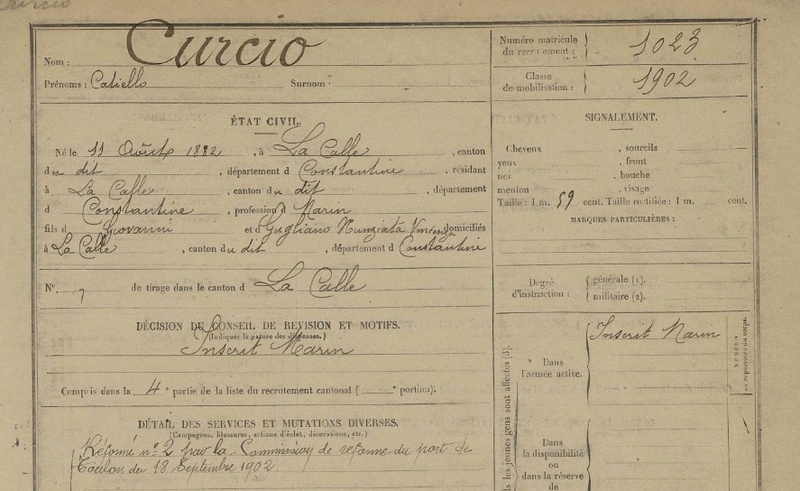 Curcio
Nom : Curcio
Prénoms : Catiello Surnom :
Numéro matricule du recrutement : 1023
Classe de mobilisation : 1902
ÉTAT CIVIL.
Né le 11 Août 1882, à La Calle, canton
du dit, département d Constantine, résidant
à La Calle, canton du dit, département
d Constantine, profession d Marin
fils d Giovanni et d Gugliano Nunziata Vincenza domiciliés
à La Calle, canton du dit, département d Constantine
N°. 7 de tirage dans le canton d La Calle
DÉCISION DU CONSEIL DE REVISION ET MOTIFS.
(Indiquer la nature des dispenses.)
Inscrit Marin
Compris dans la 4e partie de la liste du recrutement cantonal ( e portion).
DÉTAIL DES SERVICES ET MUTATIONS DIVERSES.
(Campagnes, blessures, actions d'éclat, décorations, etc.)
Réformé n° 2 par la Commission de réforme du port de
Toulon du 18 Septembre 1902.
SIGNALEMENT.
Cheveux , sourcils
yeux , front
nez , bouche
menton , visage
Taille : 1 m. 59 cent. Taille rectifiée : 1 m. cent.
MARQUES PARTICULIÈRES :
Degré d'instruction : générale (1).
militaire (2).
les jeunes gens sont affectés (3).
Dans
l'armée active.
Inscrit Marin
Dans
la disponibilité
ou
dans la réserve
de